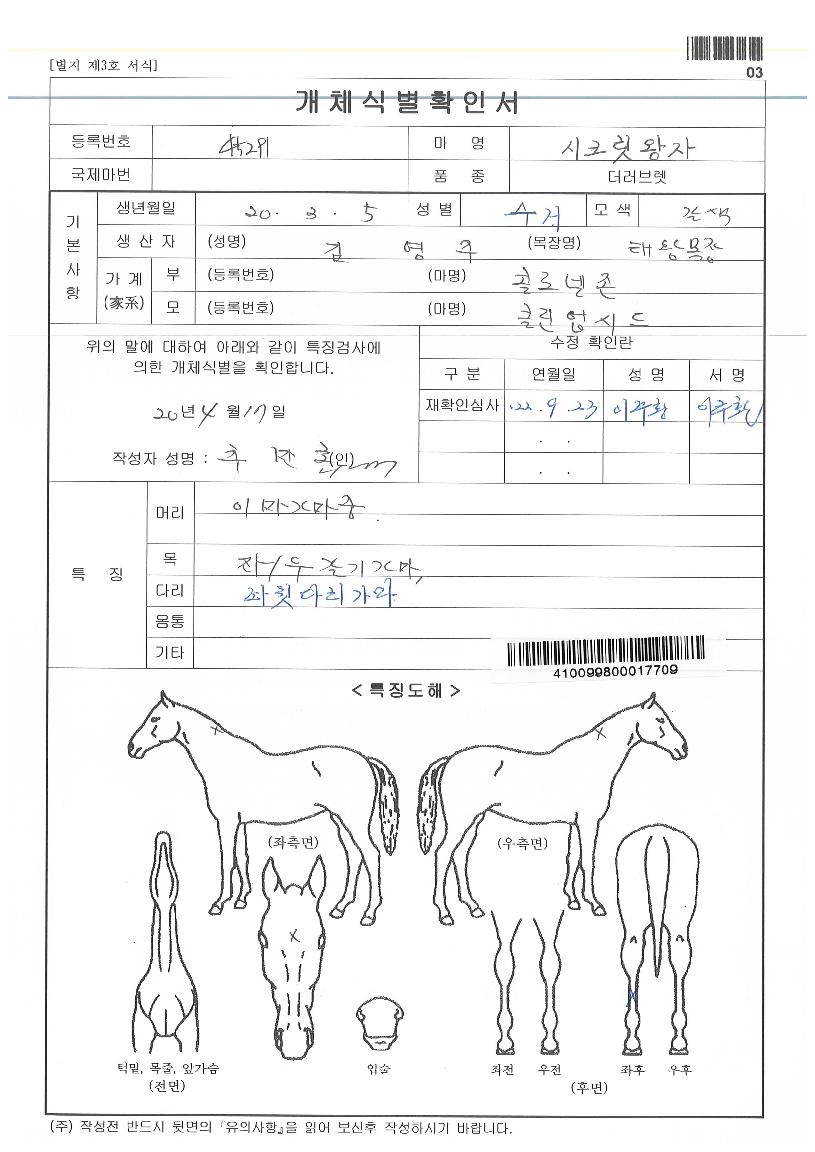 [별지 제3호 서식]
03
개체식별확인서
등록번호 마 명 시크릿왕자
국제마번 품 종 더러브렛
기본사항
생년월일 20. 3. 5 성별 수거 모색 갈색
생산자 (성명) 김 영 주 (목장명) 태왕목장
가계 (家系) 부 (등록번호) (마명) 콜로넬존
모 (등록번호) (마명) 클린업시드
위의 말에 대하여 아래와 같이 특징검사에
의한 개체식별을 확인합니다.
20년 4월 17일
작성자 성명 : (인)
수정 확인란
구분 연월일 성명 서명
재확인심사 '22. 9. 23 이주환 이주환
. .
. .
특 징
머리 이마가마중
목
다리 좌뒷다리가마
몸통
기타
410099800017709
< 특징도해 >
(좌측면) (우측면)
턱밑, 목줄, 앞가슴
(전면)
입술
좌전 우전 좌후 우후
(후면)
(주) 작성전 반드시 뒷면의 『유의사항』을 읽어 보신후 작성하시기 바랍니다.